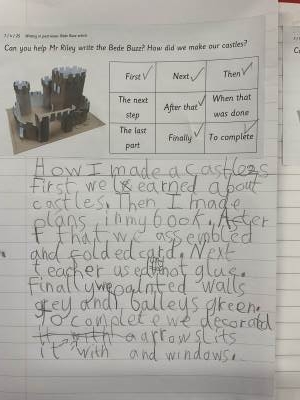 7/4/25 Writing in past tense: Bede Buzz article
Can you help Mr Riley write the Bede Buzz? How did we make our castles?
First Next Then
The next step After that When that was done
The last part Finally To complete
How I made a castles
first we learned about
castles. Then I made
plans in my book. After
that we assembled
and folded card. Next
teacher used hot glue.
Finally we painted walls
grey and balleys green.
To complete we decorated
it with aarrowslits
and windows.